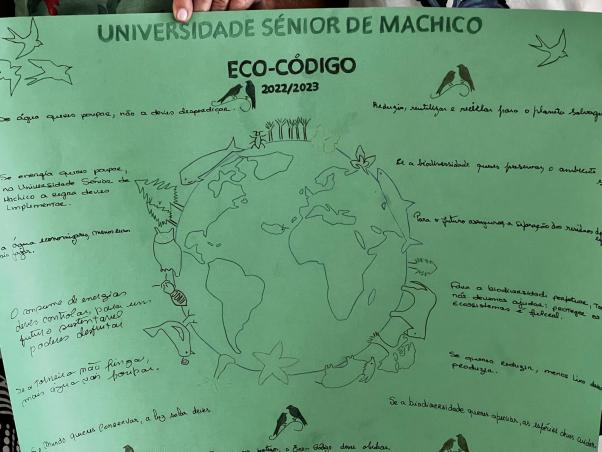 UNIVERSIDADE SÉNIOR DE MACHICO
ECO-CÓDIGO
2022/2023
Se água queres poupar, não a deves desperdiçar.
Reduzir, reutilizar e reciclar para o planeta
Se energia queres poupar,
na Universidade Sénior de
Machico a regra deves
implementar.
Se a biodiversidade queres preservar, o ambiente
Para o futuro assegurar, a separação dos resíduos
a água economizar,
O consumo de energias
deves controlar, para um
futuro sustentável
poderes desfrutar
Para a biodiversidade
nós devemos ajudar: proteger os
Ecossistemas é fulcral.
Se a torneira não pinga,
mais água vais poupar.
Se queres reduzir, menos lixo deves
produzir.
mundo queres conservar, a luz solar deves
Se a biodiversidade queres apreciar, as espécies deves cuidar
o Eco-Código deve